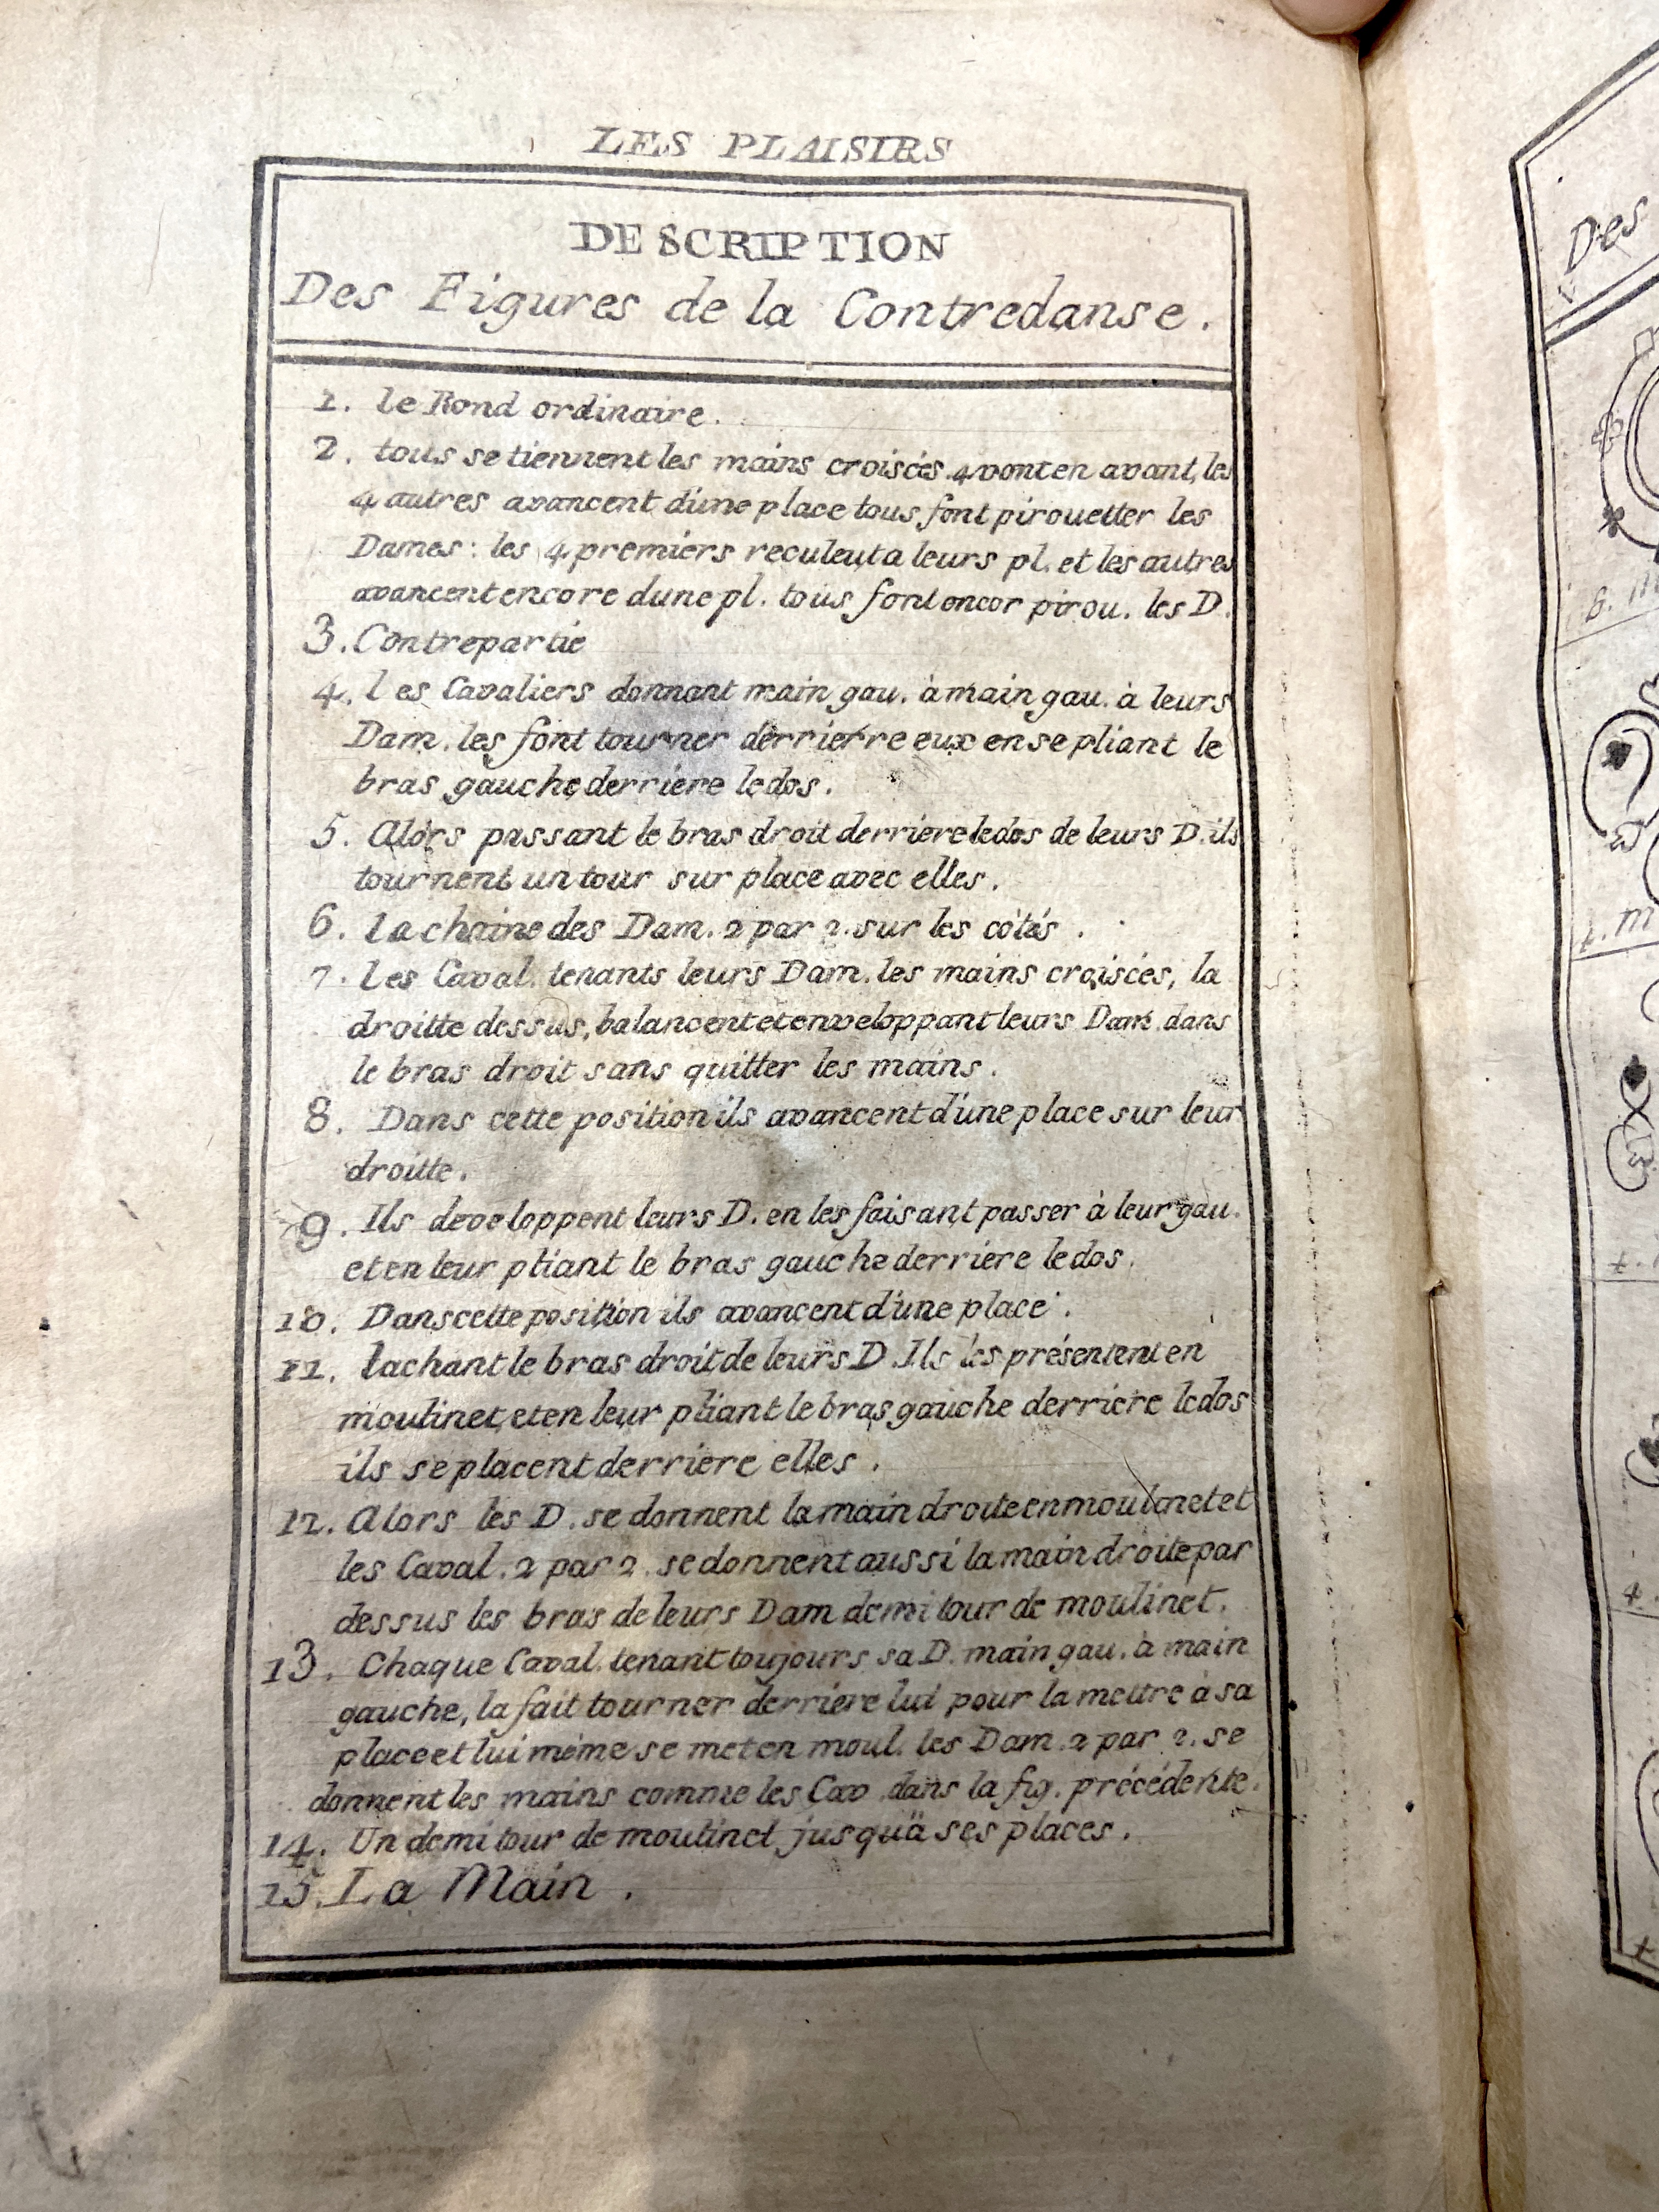 LES PLAISIRS
DESCRIPTION
Des Figures de la Contredanse.
1. le Rond ordinaire.
2. tous se tiennent les mains croisées 4 vont en avant, les
4 autres avancent d'une place tous font pirouetter les
Dames: les 4 premiers reculent a leurs pl. et les autres
avancent encore dune pl. tous font encor pirou. les D.
3. Contrepartie
4. les Cavaliers donnant main gau. à main gau. à leurs
Dam. les font tourner derrierre eux en se pliant le
bras gauche derriere le dos.
5. Alors passant le bras droit derriere le dos de leurs D. ils
tournent un tour sur place avec elles.
6. la chaine des Dam. 2 par 2. sur les côtés.
7. Les Caval. tenants leurs Dam. les mains croisées, la
droitte dessus, balancent et enveloppant leurs Dam. dans
le bras droit sans quitter les mains.
8. Dans cette position ils avancent d'une place sur leur
droitte.
9. Ils developpent leurs D. en les faisant passer à leur gau.
et en leur pliant le bras gauche derriere le dos.
10. Dans cette position ils avancent d'une place.
11. lachant le bras droit de leurs D. Ils les présentent en
moulinet, et en leur pliant le bras gauche derriere le dos
ils se placent derriere elles.
12. Alors les D. se donnent la main droite en moulinet et
les Caval. 2 par 2. se donnent aussi la main droite par
dessus les bras de leurs Dam demi tour de moulinet.
13. Chaque Caval. tenant toujours sa D. main gau. à main
gauche, la fait tourner derriere lui pour la mettre à sa
place et lui même se met en moul. les Dam. 2 par 2. se
donnent les mains comme les Cav. dans la fig. précédente.
14. Un demi tour de moulinet jusqu'à ses places.
15. La Main.
Des